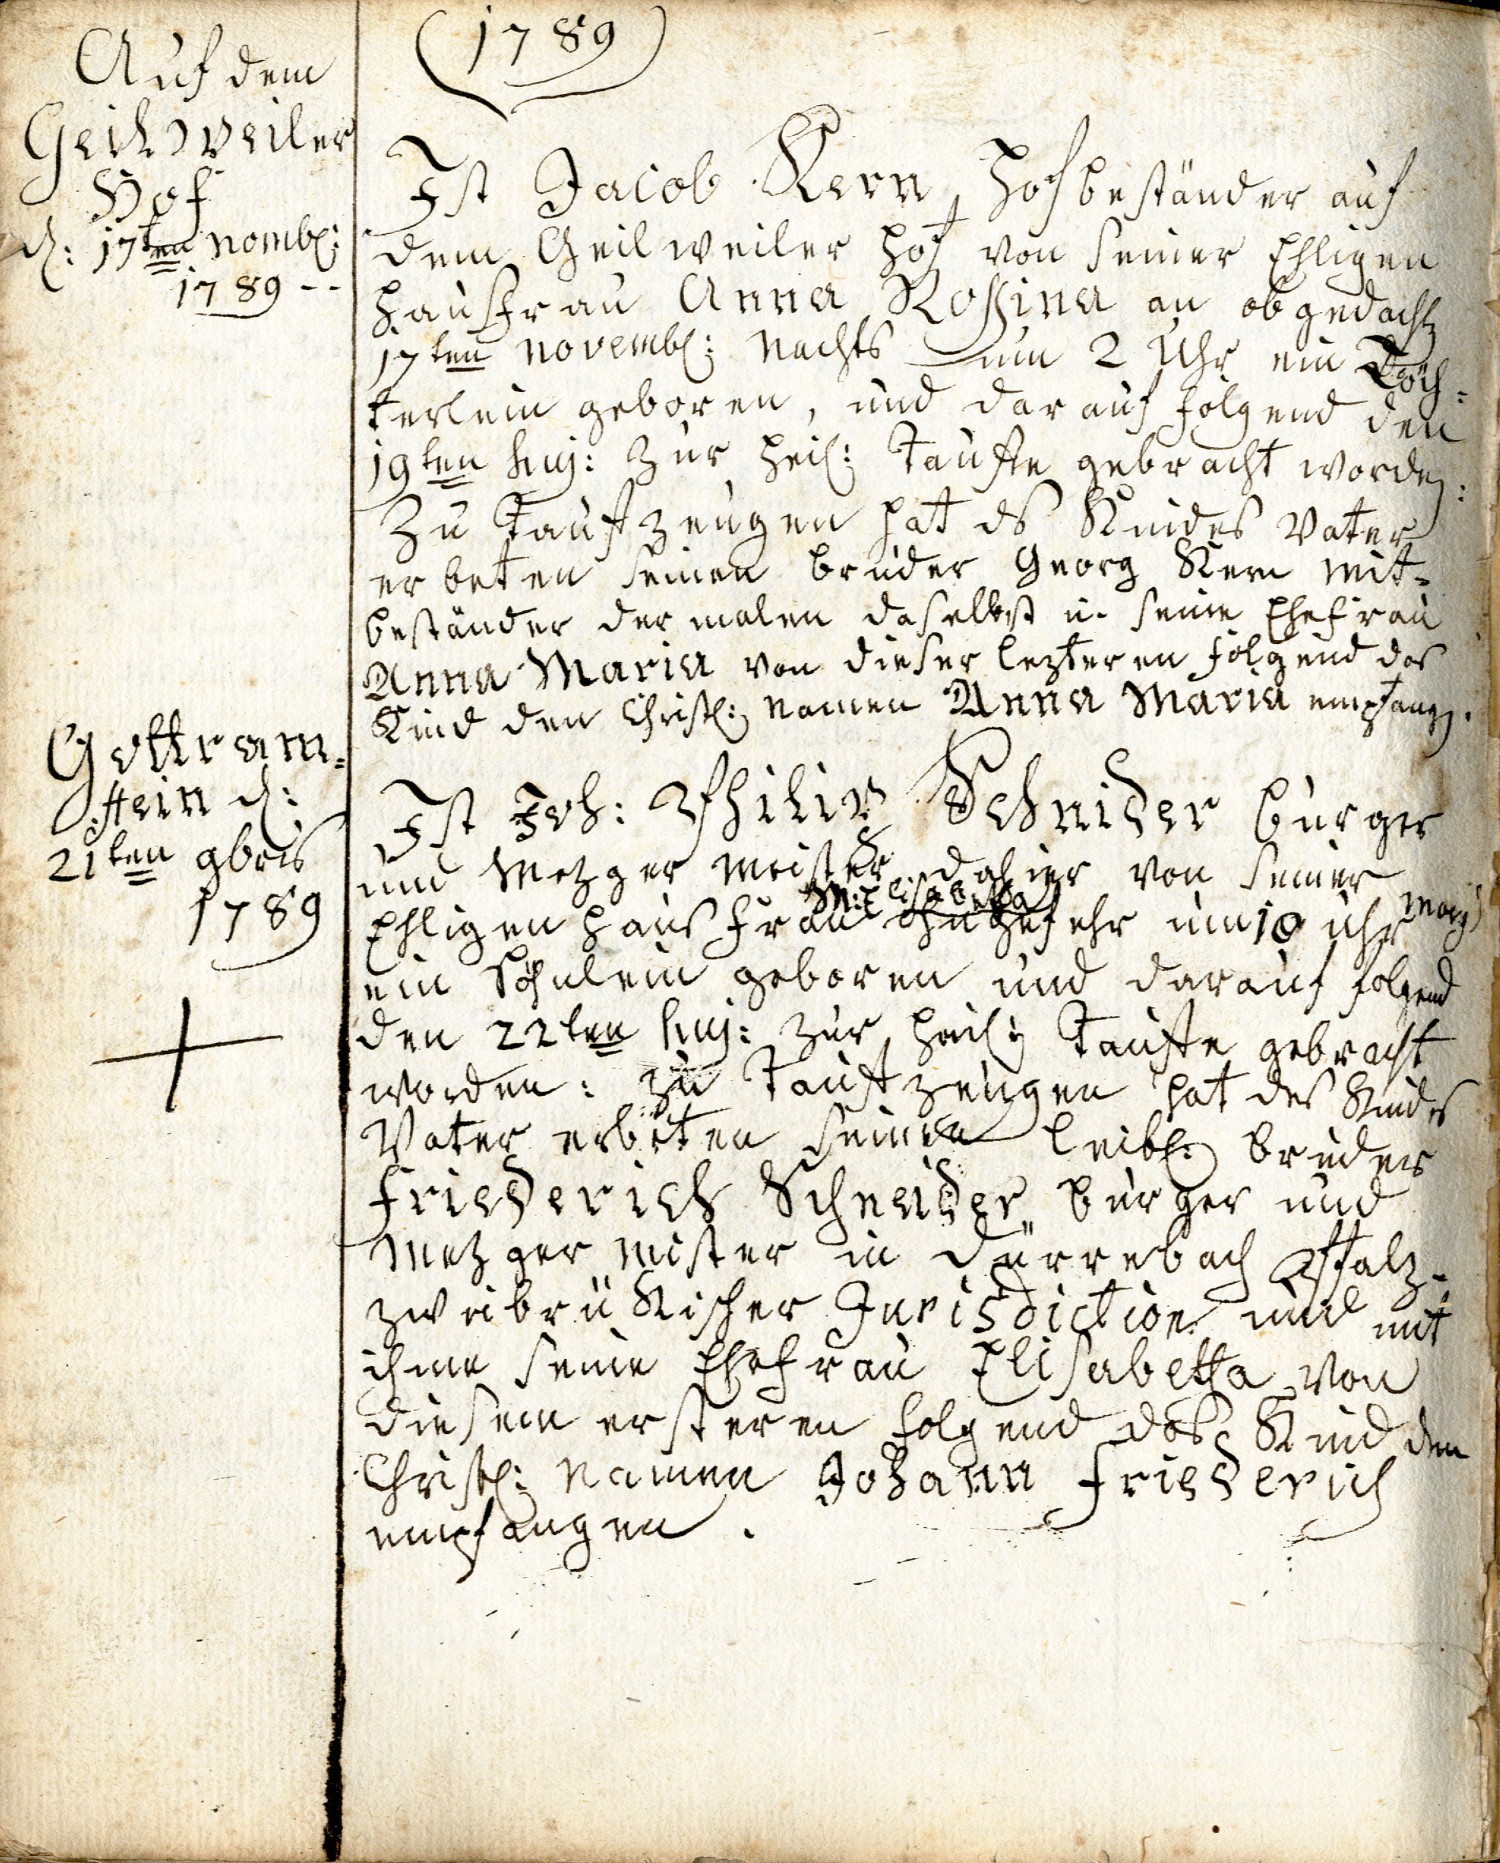 (1789)
Auf dem
Geilweiler
Hof
d: 17ten novemb:
1789 --
Ist Jacob Kern, Hofbeständer auf
dem Geilweiler hof von seiner Ehligen
haußfrau Anna Rossina an obgedacht
17ten novemb: Nachts um 2 Uhr ein Töch=
terlein geboren, und darauf folgend den
19ten huj: zur heil: Tauffe gebracht worden:
Zu Taufzeugen hat ds Kindes Vater
erbeten seinen bruder Georg Kern mit=
beständer dermalen daselbst u. seine Ehefrau
Anna Maria von dieser lezteren folgend das
Kind den Christl: Namen Anna Maria empfangen.
Gottram=
stein d:
21ten 9bris
1789
Ist Joh: Philip Schnider burger
und Mezger meister dahier von seiner
M: Elisabetha
Ehligen hausfrau ohngefehr um 10 uhr morg
ein Söhnlein geboren und darauf folgend
den 22ten huj: zur heil: Tauffe gebracht
worden: zu Taufzeugen hat des Kindes
Vater erbeten seinen leibl: bruder
Friederich Schneider burger und
Mezger mister in Dürrebach Pfalz=
zweibrükischer Jurisdiction und mit
ihme seine Ehefrau Elisabetha von
diesem ersteren folgend das Kind den
Christl: Namen Johann Friederich
empfangen.